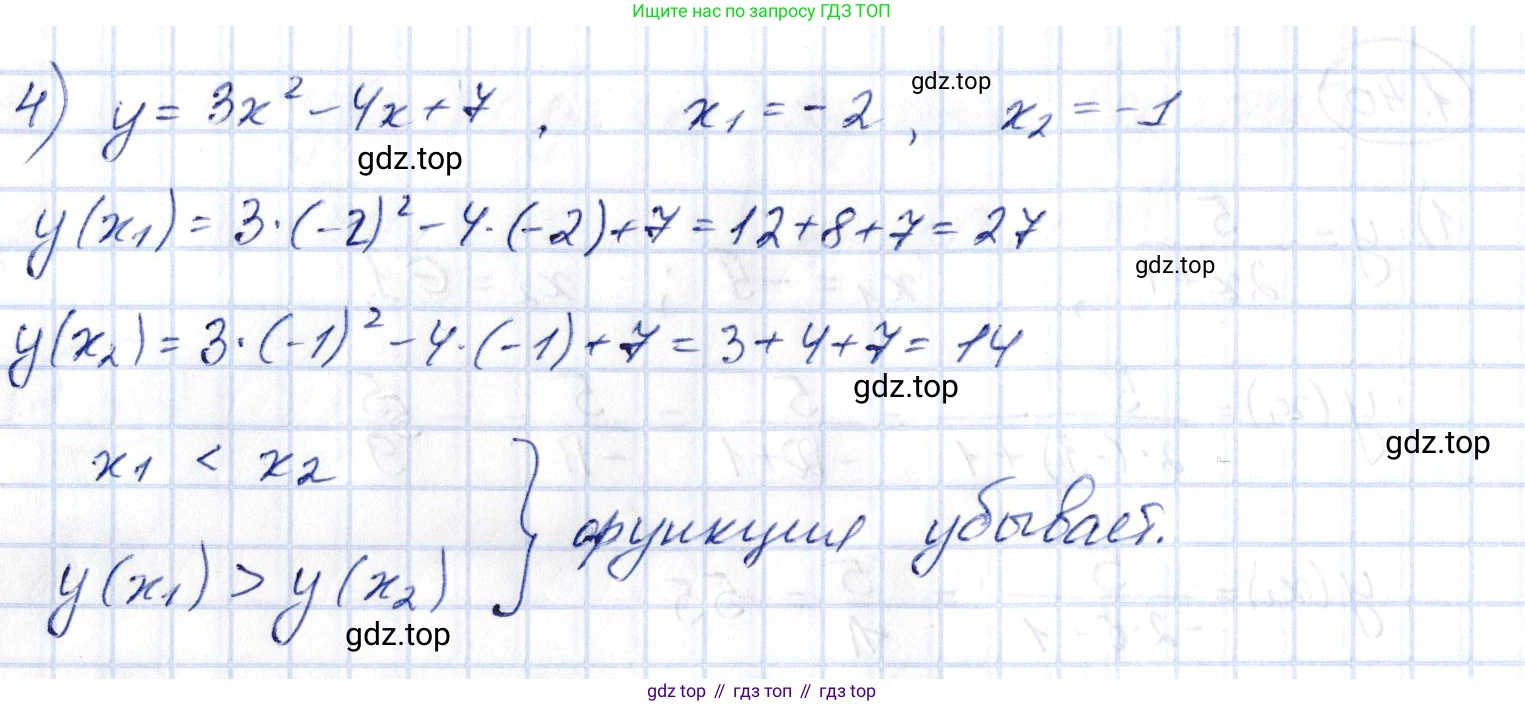 Ищите нас по запросу ГДЗ ТОП
4) y = 3x² - 4x + 7 , x₁ = -2 , x₂ = -1
gdz.top
gdz.top
y(x₁) = 3·(-2)² - 4·(-2) + 7 = 12 + 8 + 7 = 27
gdz.top
y(x₂) = 3·(-1)² - 4·(-1) + 7 = 3 + 4 + 7 = 14
gdz.top
gdz.top
x₁ < x₂
функция убывает.
y(x₁) > y(x₂)
gdz.top
gdz top // гдз топ // гдз top